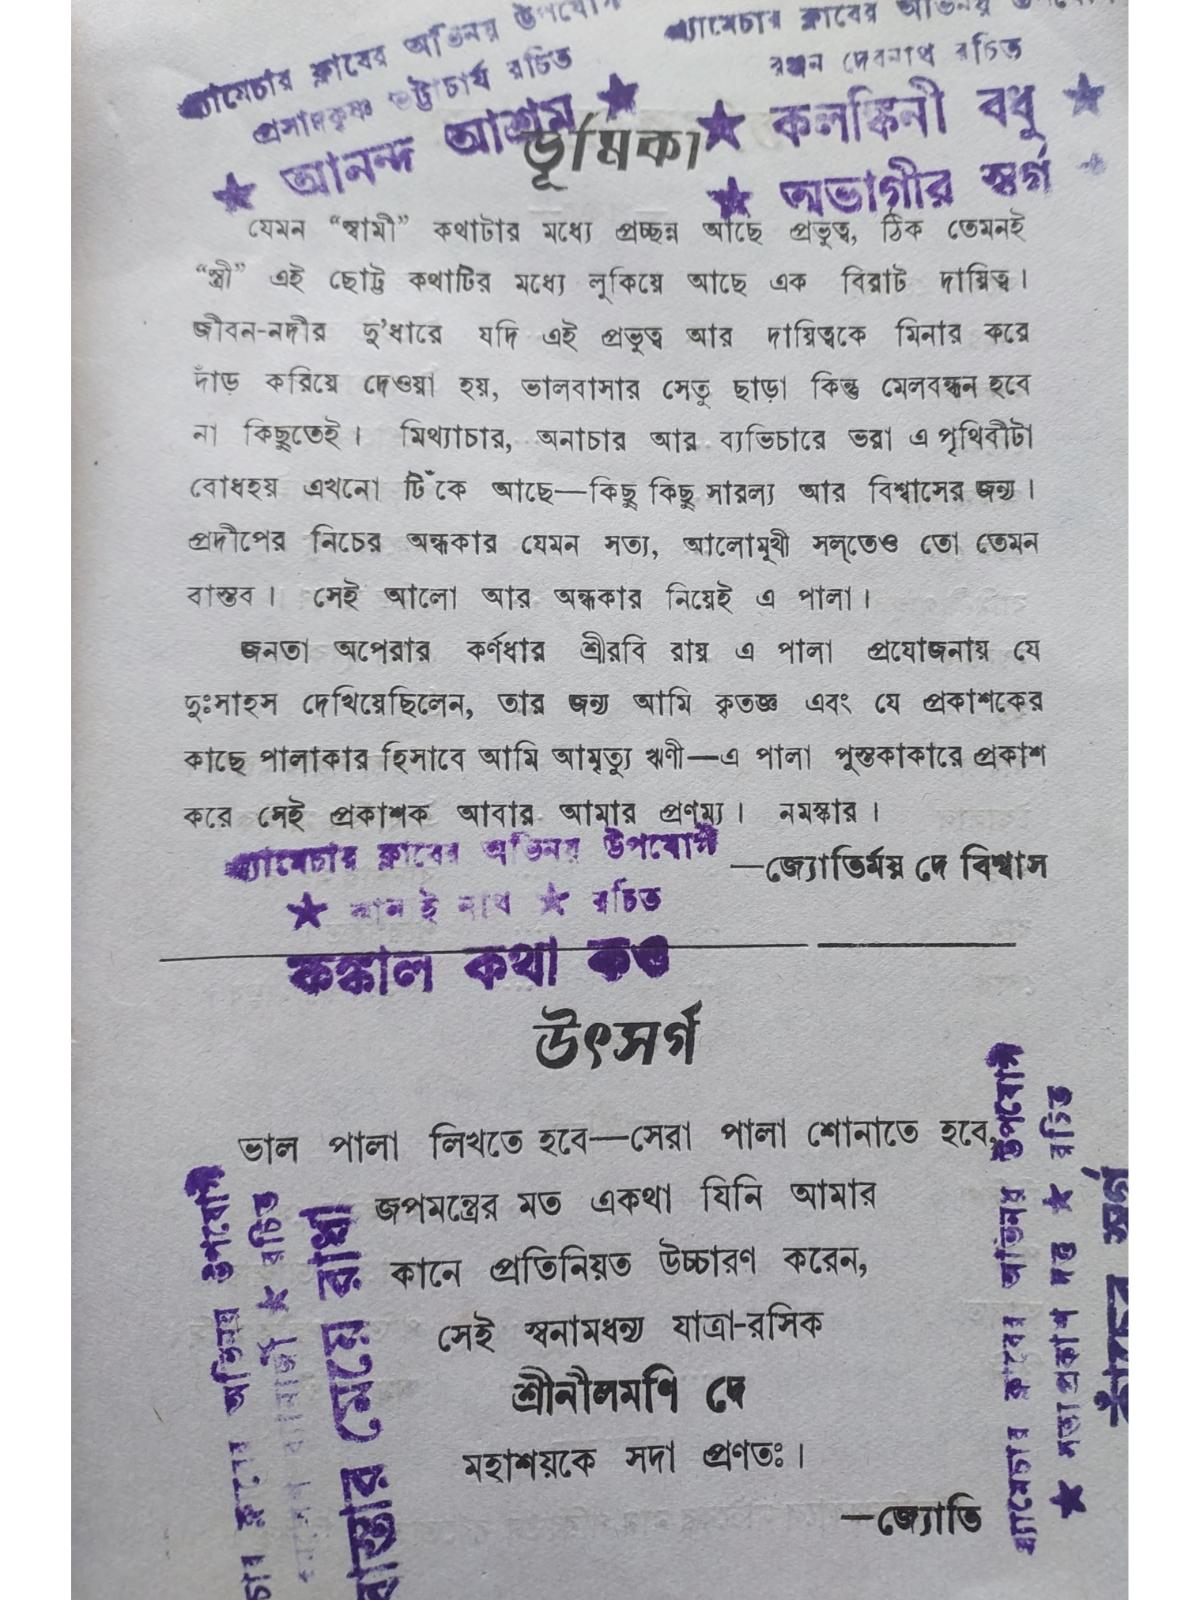 অ্যামেচার ক্লাবের অভিনয় উপযোগী
প্রসাদকৃষ্ণ ভট্টাচার্য রচিত
★ আনন্দ আশ্রম ★
অ্যামেচার ক্লাবের অভিনয়
রঞ্জন দেবনাথ রচিত
★ কলঙ্কিনী বধূ ★
★ অভাগীর স্বর্গ
ভূমিকা
যেমন “স্বামী” কথাটার মধ্যে প্রচ্ছন্ন আছে প্রভুত্ব, ঠিক তেমনই
“স্ত্রী” এই ছোট্ট কথাটির মধ্যে লুকিয়ে আছে এক বিরাট দায়িত্ব।
জীবন-নদীর দু’ধারে যদি এই প্রভুত্ব আর দায়িত্বকে মিনার করে
দাঁড় করিয়ে দেওয়া হয়, ভালবাসার সেতু ছাড়া কিন্তু মেলবন্ধন হবে
না কিছুতেই। মিথ্যাচার, অনাচার আর ব্যভিচারে ভরা এ পৃথিবীটা
বোধহয় এখনো টিঁকে আছে—কিছু কিছু সারল্য আর বিশ্বাসের জন্য।
প্রদীপের নিচের অন্ধকার যেমন সত্য, আলোমুখী সল্‌তেও তো তেমন
বাস্তব। সেই আলো আর অন্ধকার নিয়েই এ পালা।
জনতা অপেরার কর্ণধার শ্রীরবি রায় এ পালা প্রযোজনায় যে
দুঃসাহস দেখিয়েছিলেন, তার জন্য আমি কৃতজ্ঞ এবং যে প্রকাশকের
কাছে পালাকার হিসাবে আমি আমৃত্যু ঋণী—এ পালা পুস্তকাকারে প্রকাশ
করে সেই প্রকাশক আবার আমার প্রণম্য। নমস্কার।
—জ্যোতির্ময় দে বিশ্বাস
অ্যামেচার ক্লাবের অভিনয় উপযোগী
★ কানাই নাথ ★ রচিত
কঙ্কাল কথা কও
উৎসর্গ
ভাল পালা লিখতে হবে—সেরা পালা শোনাতে হবে,
জপমন্ত্রের মত একথা যিনি আমার
কানে প্রতিনিয়ত উচ্চারণ করেন,
সেই স্বনামধন্য যাত্রা-রসিক
শ্রীনীলমণি দে
মহাশয়কে সদা প্রণতঃ।
—জ্যোতি
ক্লাবের অভিনয় উপযোগী
★ রচিত
রাস্তার মেয়ে রাধা
অ্যামেচার ক্লাবের অভিনয় উপযোগী
★ সত্যপ্রকাশ দত্ত ★ রচিত